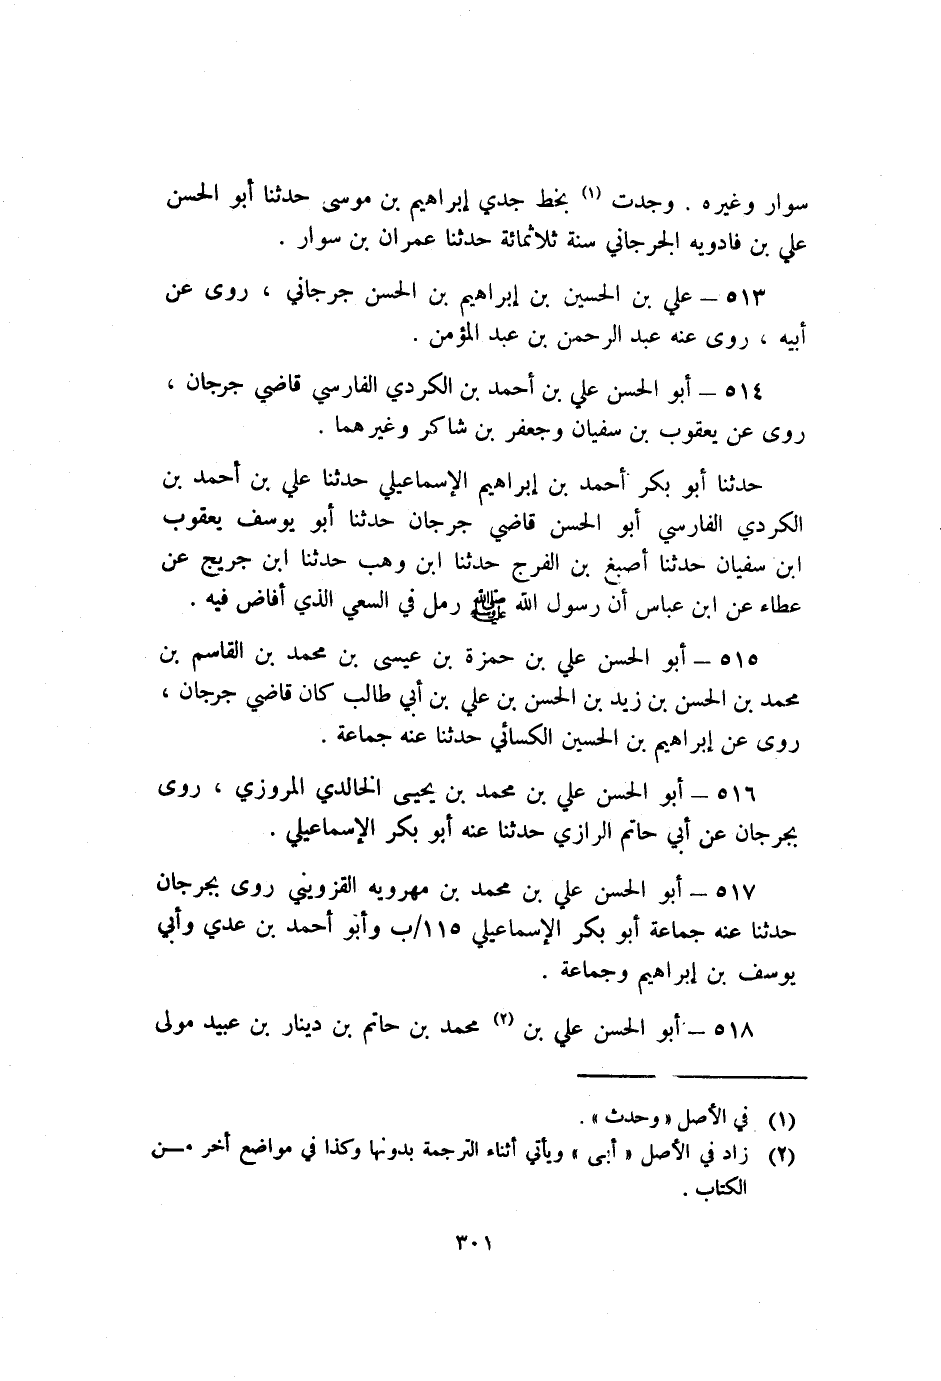 سوار وغيره . وجدت (١) بخط جدي إبراهيم بن موسى حدثنا أبو الحسن
علي بن فادويه الجرجاني سنة ثلاثمائة حدثنا عمران بن سوار .
٥١٣ – علي بن الحسين بن إبراهيم بن الحسن جرجاني ، روى عن
أبيه ، روى عنه عبد الرحمن بن عبد المؤمن .
٥١٤ – أبو الحسن علي بن أحمد بن الكردي الفارسي قاضي جرجان ،
روى عن يعقوب بن سفيان وجعفر بن شاكر وغيرهما .
حدثنا أبو بكر أحمد بن إبراهيم الإسماعيلي حدثنا علي بن أحمد بن
الكردي الفارسي أبو الحسن قاضي جرجان حدثنا أبو يوسف يعقوب
ابن سفيان حدثنا أصبغ بن الفرج حدثنا ابن وهب حدثنا ابن جريج عن
عطاء عن ابن عباس أن رسول الله ﷺ رمل في السعي الذي أفاض فيه .
٥١٥ – أبو الحسن علي بن حمزة بن عيسى بن محمد بن القاسم بن
محمد بن الحسن بن زيد بن الحسن بن علي بن أبي طالب كان قاضي جرجان ،
روى عن إبراهيم بن الحسين الكسائي حدثنا عنه جماعة .
٥١٦ – أبو الحسن علي بن محمد بن يحيى الخالدي المروزي ، روى
بجرجان عن أبي حاتم الرازي حدثنا عنه أبو بكر الإسماعيلي .
٥١٧ – أبو الحسن علي بن محمد بن مهرويه القزويني روى بجرجان
حدثنا عنه جماعة أبو بكر الإسماعيلي ١١٥/ب وأبو أحمد بن عدي وأبي
يوسف بن إبراهيم وجماعة .
٥١٨ – أبو الحسن علي بن (٢) محمد بن حاتم بن دينار بن عبيد مولى
(١) في الأصل « وحدث » .
(٢) زاد في الأصل « أبى » ويأتي أثناء الترجمة بدونها وكذا في مواضع أخر مـن
الكتاب .
٣٠١